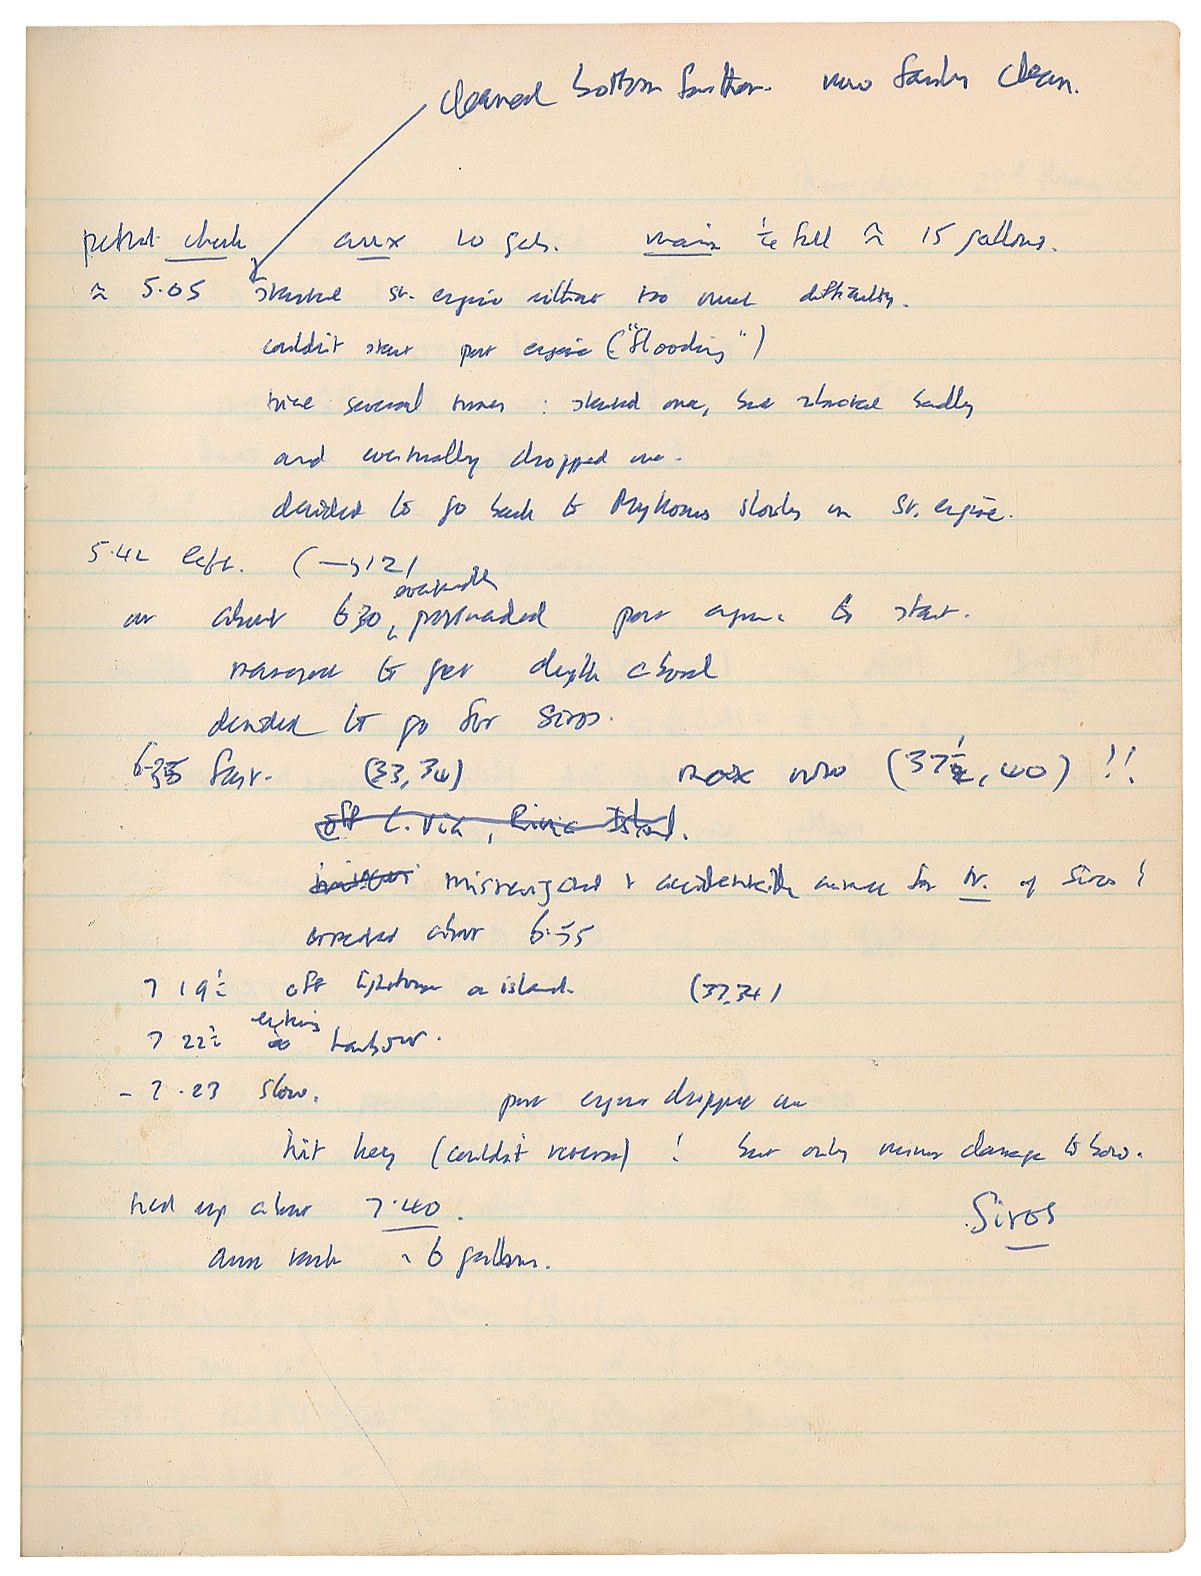 cleaned bottom further. now fairly clean.
petrol check aux 10 gals. main ½ full ≈ 15 gallons.
≈ 5.05 started st. engine without too much difficulty.
couldn't start port engine ("flooding")
tried several times : started once, but smoked badly
and eventually dropped out.
decided to go back to Mykonos slowly on st. engine.
5.42 left. (→12)
eventually
at about 6.30, persuaded port engine to start.
managed to get dinghy aboard
decided to go for Siros.
6.35 fast. (33, 34) max now (37½, 40) !!
off C. , Island.
misnavigated & accidentally aimed for N. of Siros !
corrected about 6.55
7 19½ off lighthouse on island. (37,34)
entering
7 22½ harbour.
- 7.23 slow. port engine dropped out
hit key (couldn't reverse) ! but only minor damage to bow.
tied up about 7.40. Siros
aux tank ~ 6 gallons.